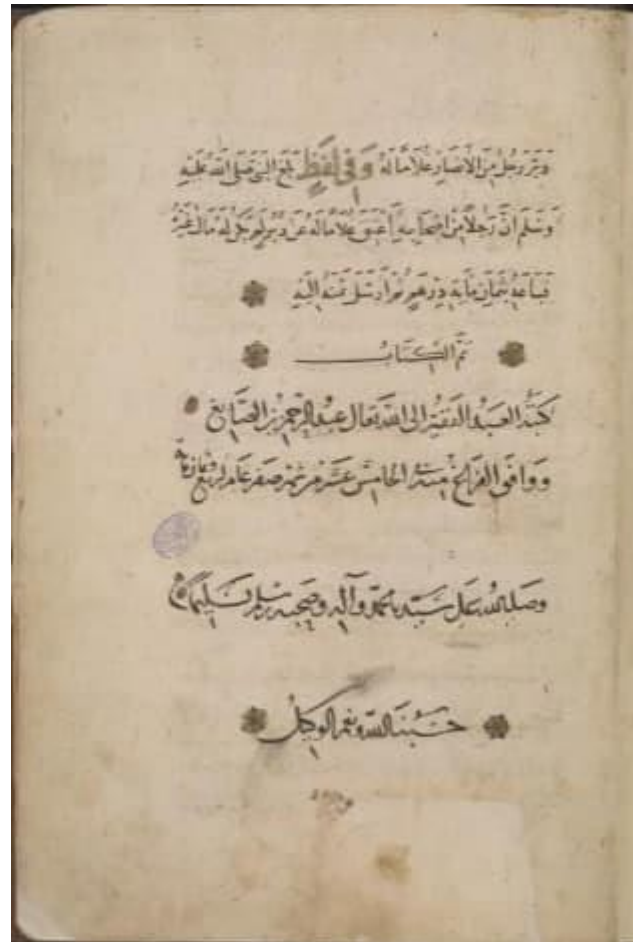 دَبَّرَ رَجُلٌ مِنَ الْأَنْصَارِ غُلَامًا لَهُ وَفِي لَفْظٍ بَلَغَ النَّبِيَّ صَلَّى اللَّهُ عَلَيْهِ
وَسَلَّمَ أَنَّ رَجُلًا مِنْ أَصْحَابِهِ أَعْتَقَ غُلَامًا لَهُ عَنْ دُبُرٍ لَمْ يَكُنْ لَهُ مَالٌ غَيْرُهُ
فَبَاعَهُ بِثَمَانِ مِايَةِ دِرْهَمٍ ثُمَّ أَرْسَلَ ثَمَنَهُ إِلَيْهِ
تم الكتاب
كتبه العبد الفقير الى الله تعالى عبد الرحمن بن الصايغ
ووافق الفراغ منه الخامس عشر من شهر صفر عام اربع وثمان ماية
وصلى الله على سيدنا محمد وآله وصحبه وسلم تسليما
حسبنا الله ونعم الوكيل